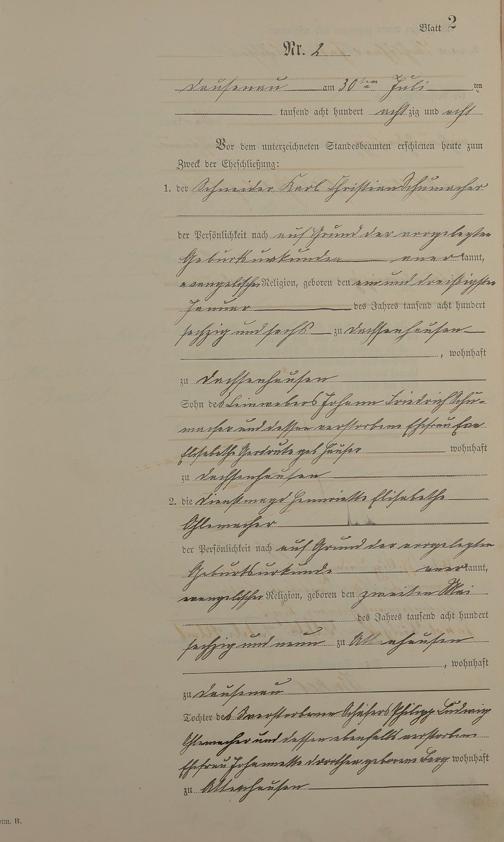 Blatt 2
Nr. 2
Dausenau am 30ten Juli
tausend acht hundert achtzig und acht
Vor dem unterzeichneten Standesbeamten erschienen heute zum
Zweck der Eheschließung:
1. der Schneider Karl Christian Schumacher
der Persönlichkeit nach auf Grund der vorgelegten
Geburtsurkunde anerkannt,
evangelischer Religion, geboren den ein und dreißigsten
Januar des Jahres tausend acht hundert
sechzig und sechs zu Dachsenhausen
, wohnhaft
zu Dachsenhausen
Sohn des Leinwebers Johann Friedrich Schu-
macher und dessen verstorbene Ehefrau Eva
Elisabethe Gertrute geb. Häuser wohnhaft
zu Dachsenhausen
2. die Dienstmagd Henriette Elisabethe
Ohlemacher
der Persönlichkeit nach auf Grund der vorgelegten
Geburtsurkunde anerkannt,
evangelischer Religion, geboren den zweiten Mai
des Jahres tausend acht hundert
sechzig und neun zu Attenhausen
, wohnhaft
zu Dausenau
Tochter des verstorbenen Schäfers Philipp Ludwig
Ohlemacher und dessen ebenfalls verstorbene
Ehefrau Johannette Dorothea geborene Berg wohnhaft
zu Attenhausen
B.